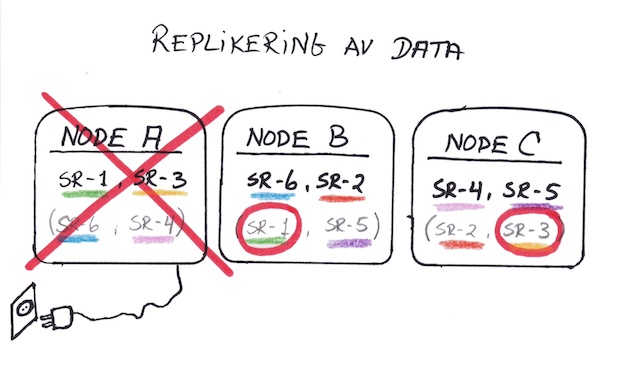 REPLIKERING AV DATA
NODE A
SR-1, SR-3
(SR-6, SR-4)
NODE B
SR-6, SR-2
(SR-1, SR-5)
NODE C
SR-4, SR-5
(SR-2, SR-3)